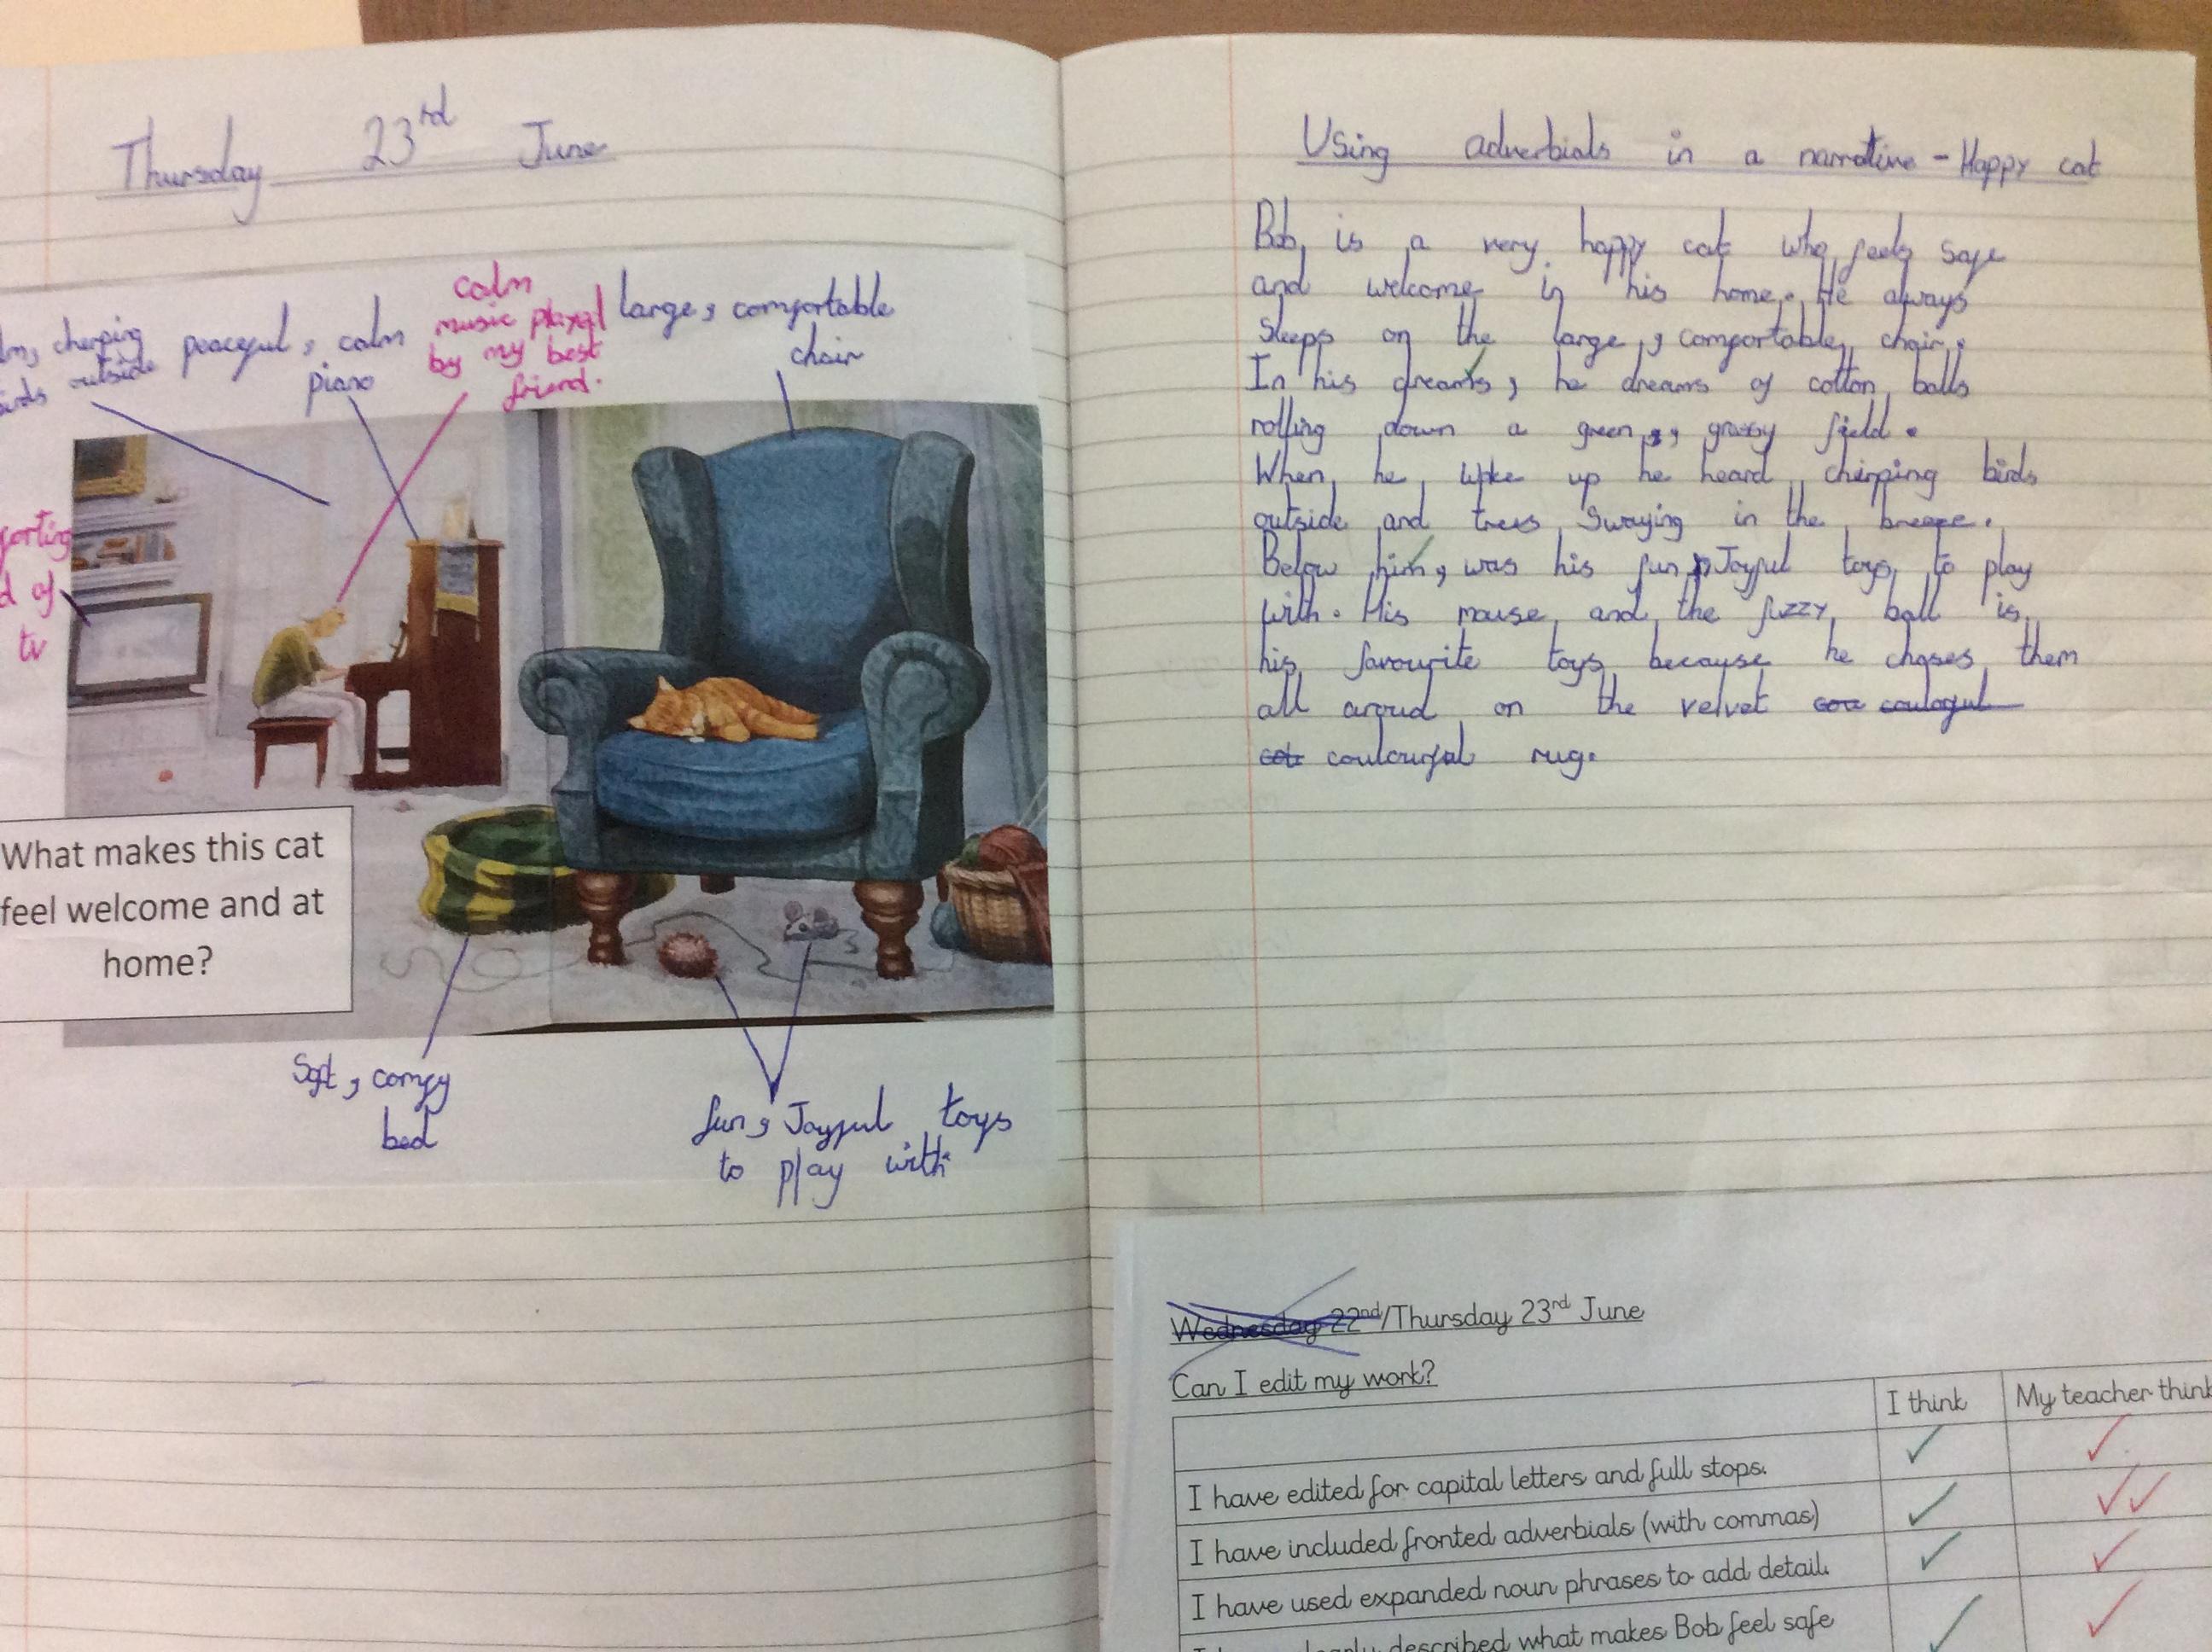 Thursday 23rd June
calm
music played
by my best
friend.
chirping
outside
peaceful, calm
piano
large, comfortable
chair
of
tv
What makes this cat
feel welcome and at
home?
Soft, comfy
bed
fun, Joyful toys
to play with
Using adverbials in a narrative - Happy cat
Bob is a very happy cat who feels safe
and welcome in his home. He always
sleeps on the large, comfortable chair.
In his dreams, he dreams of cotton balls
rolling down a green, grassy field.
When he woke up he heard chirping birds
outside and trees swaying in the breeze.
Below him, was his fun, Joyful toys to play
with. His mouse and the fuzzy ball is
his favourite toys because he chases them
all aroud on the velvet
coulourful rug.
Wednesday 22nd/Thursday 23rd June
Can I edit my work?
I think
My teacher think
I have edited for capital letters and full stops.
I have included fronted adverbials (with commas)
I have used expanded noun phrases to add detail.
described what makes Bob feel safe